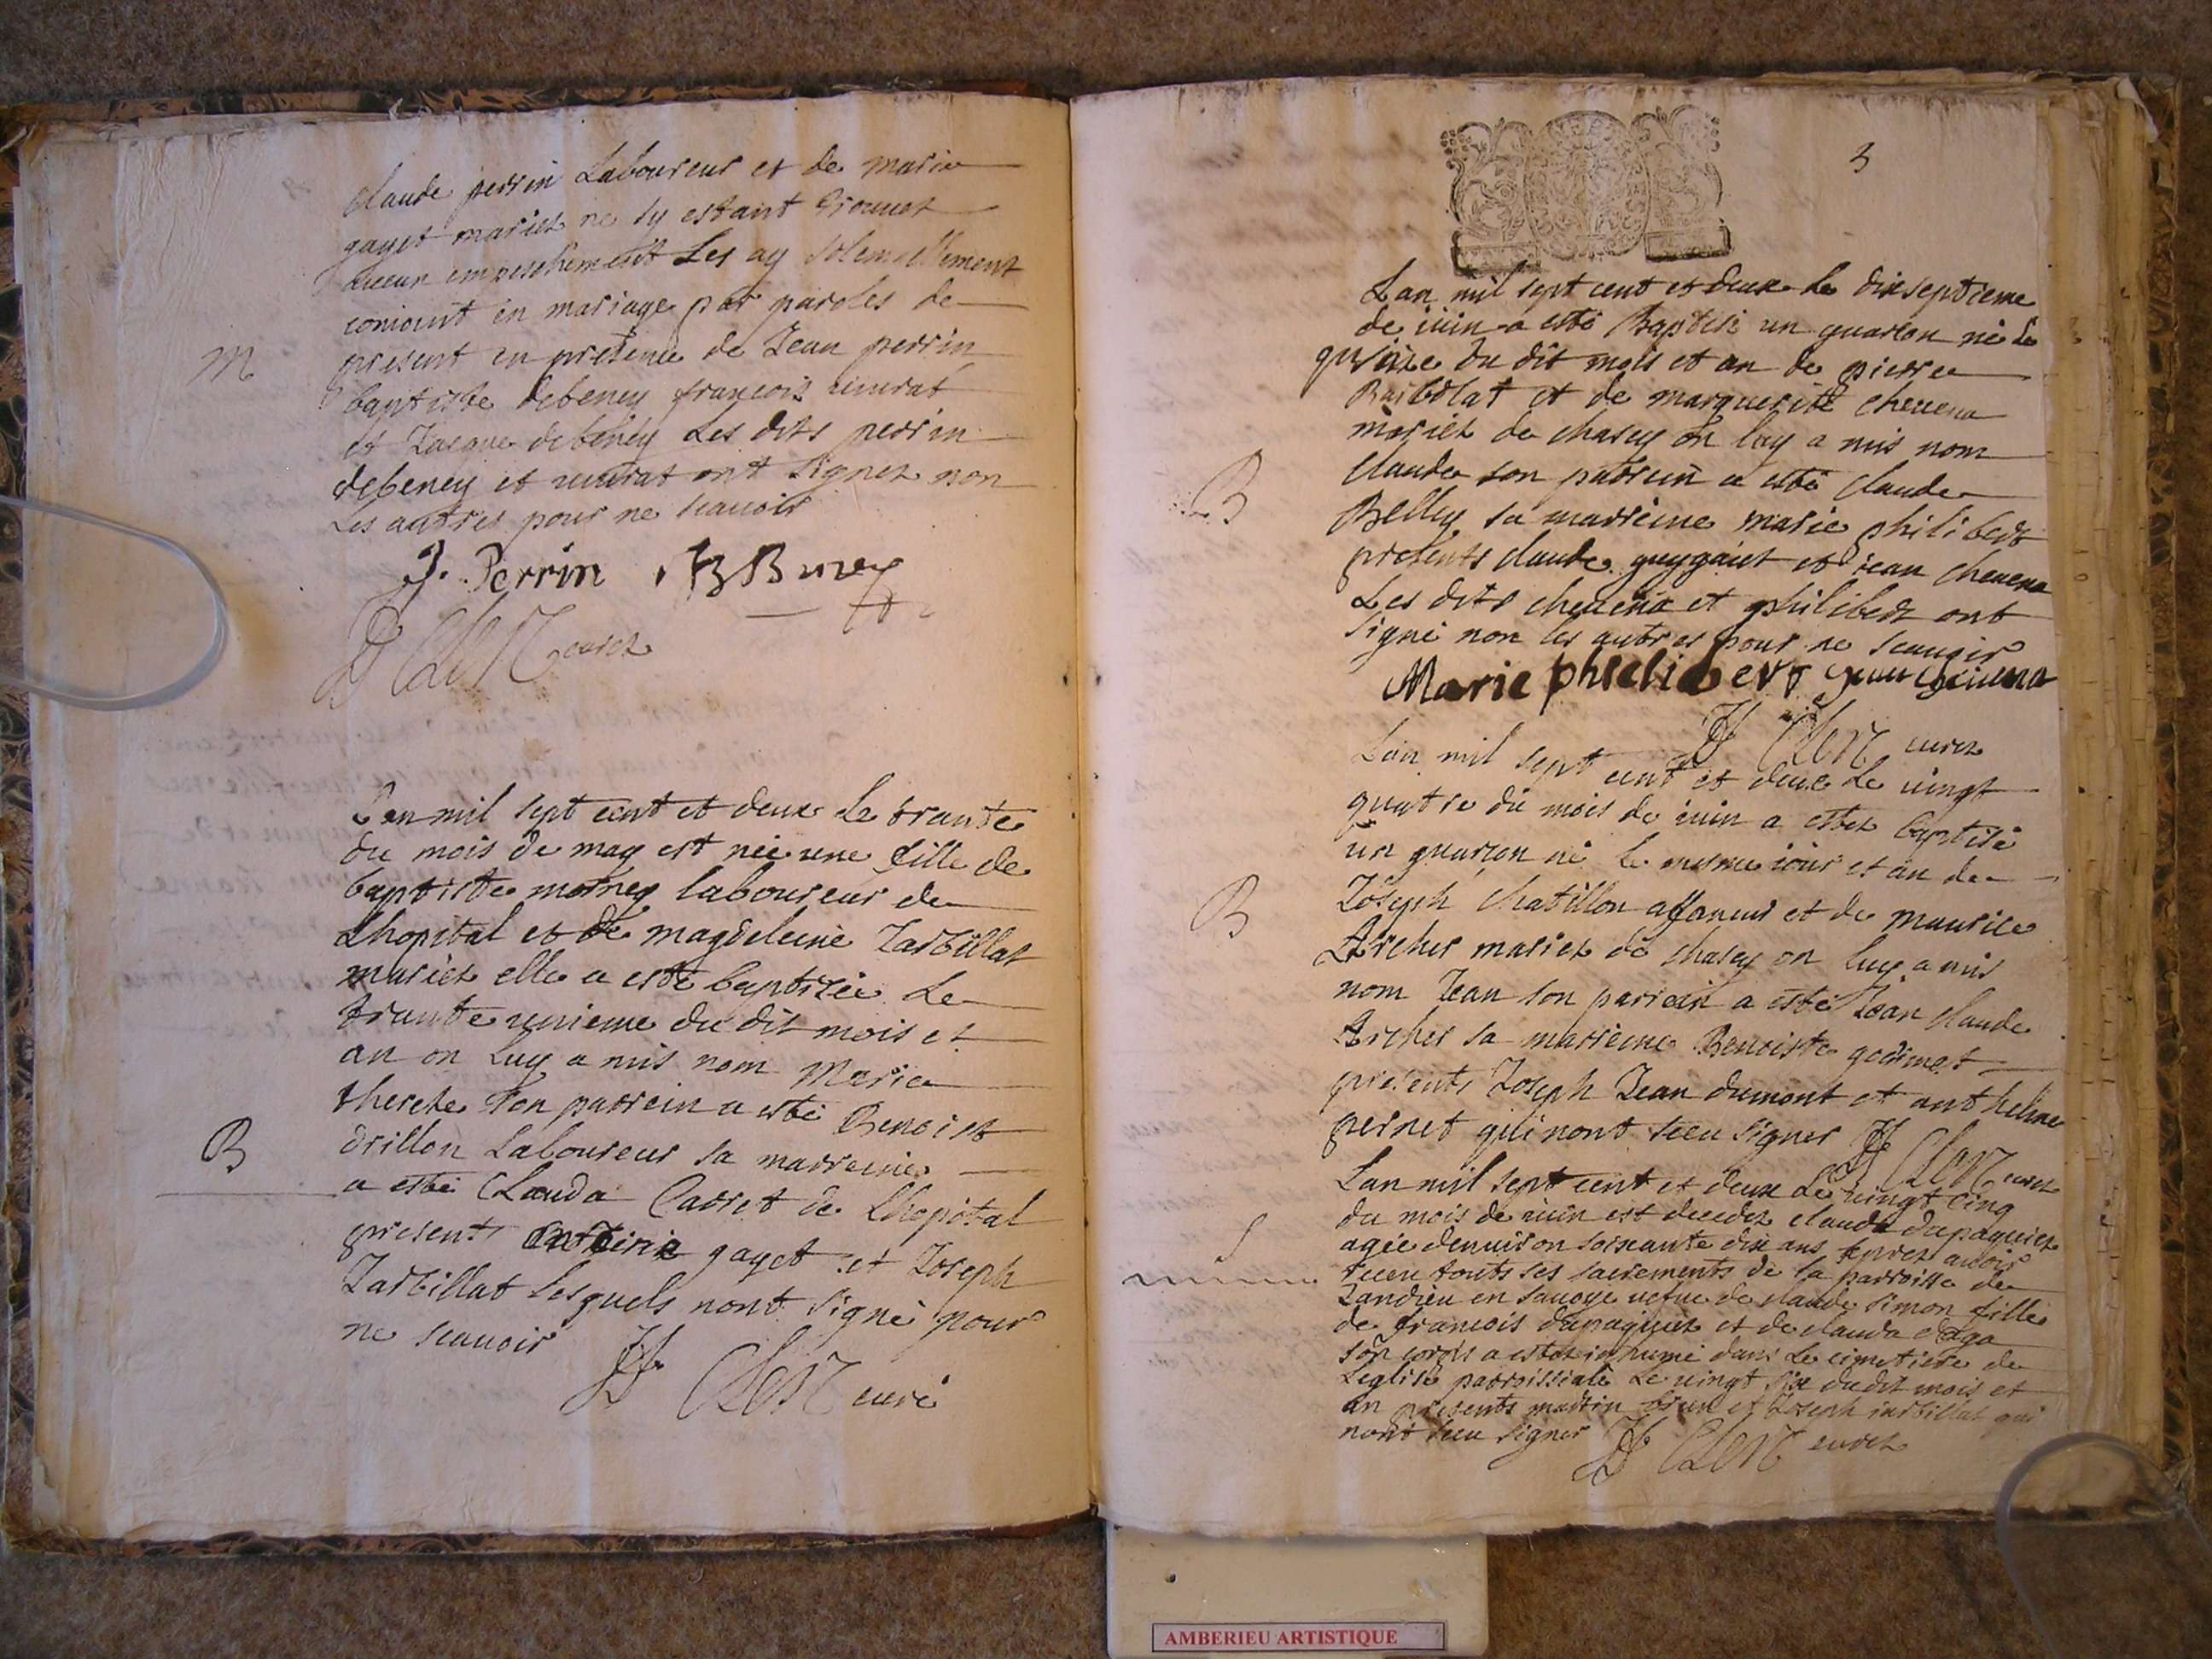 claude perrin Laboureur et de marie
gayet mariez ne sy estant trouuet
aucun empeschement Les ay solemnellement
conioint en mariage par paroles de
M
present en presence de Jean perrin
baptiste debeney francois
et Jacque debeney Les dits perrin
debeney et ont signez non
Les autres pour ne scauoir
J. Perrin
Clerc curez
Lan mil sept cent et deux le trante
du mois de may est neè une fille de
baptiste laboureur de
Lhopital et de magdeleine Jarbillat
mariez elle a estè baptizèe Le
trante unieme du dit mois et
an on luy a mis nom Marie
therese son parrein a estè Benoist
B
drillon Laboureur sa marreine
a estè Clauda Carret de Lhopital
present gayet et Joseph
Jarbillat lesquels nont signè pour
ne scauoir
Clerc curè
3
Lan mil sept cent et deux le dixseptieme
de iuin a estè Baptisè un guarson nè le
quinze du dit mois et an de pierre
et de marguerite cheuena
mariez de chasey on luy a mis nom
B
claude son parrein a estè claude
Belley sa marreine marie philibert
presents claude et iean cheuena
Les dits cheuena et philibert ont
signè non les autres pour ne scauoir
Marie phielibert Jean cheuena
Clerc curez
Lan mil sept cent et deux le uingt
quatre du mois de iuin a estez baptisè
un guarson nè le mesme iour et an de
B
Joseph chatillon affaneur et de maurice
Archer mariez de chasey on luy a mis
nom Jean son parrein a estè Jean claude
Archer sa marreine Benoiste
presents Joseph Jean dumont et anthelme
pernet qui nont sceu signer
Clerc curez
Lan mil sept cent et deux Le uingt cinq
du mois de iuin est decedez clauda dupaquier
S
agèe denuiron soixante dix ans apres auoir
receu touts ses sacrements de la parroisse de
Landieu en sauoye uefue de claude simon fille
de francois dupaquier et de clauda
son corps a estez inhumè dans le cimetiere de
Leglise parroissiale Le uingt six dudit mois et
an presents martin brun et Joseph iarbillat qui
nont sceu signer
Clerc curez
AMBERIEU ARTISTIQUE